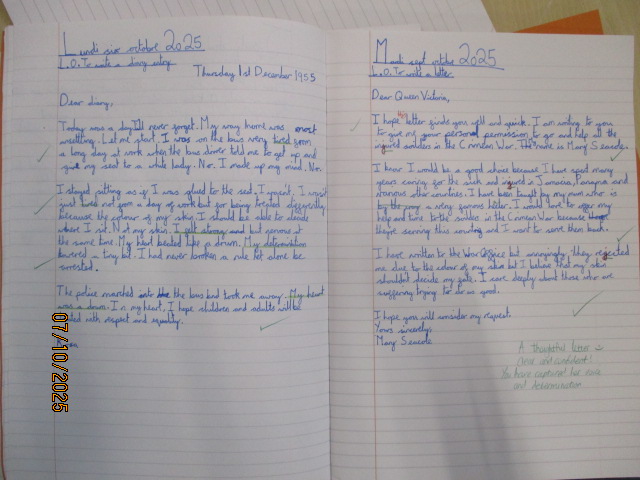 Lundi six octobre 2025
L.O. To write a diary entry
Thursday 1st December 1955
Dear diary,
Today was a day I'll never forget. My way home was most
unsettling. Let me start. I was on the bus very tired from
a long day at work when the bus driver told me to get up and
give my seat to a white lady. No. I made up my mind. No.
I stayed sitting as if I was glued to the seat. I wasn't
just tired not from a day of work but for being treated differently
because the colour of my skin. I should be able to decide
where I sit. Not my skin. I felt strong and but nervous at
the same time. My heart beated like a drum. My determination
lowered a tiny bit. I had never broken a rule let alone be
arrested.
The police marched into the the bus and took me away. My heart
was a drum. In my heart, I hope children and adults will be
treated with respect and equality.
07/10/2025
Mardi sept octobre 2025
L.O. To write a letter
Dear Queen Victoria,
I hope this letter finds you well and quick. I am writing to you
to give me your personal permission to go and help all the
injured soldiers in the Crimean War. The name is Mary Seacole.
I know I would be a good choice because I have spent many
years caring for the sick and injured in Jamaica, Panama and
various other countries. I have been taught by my mum who is
a very famous healer. I would love to offer my
help and time to the soldiers in the Crimean War because
they're serving this country and I want to serve them back.
I have written to the War Office but annoyingly they rejected
me due to the colour of my skin but I believe that my skin
shouldn't decide my fate. I care deeply about those who are
suffering trying to do us good.
I hope you will consider my request.
Yours sincerely,
Mary Seacole
A thoughtful letter
clear and confident!
You have captured her voice
and determination